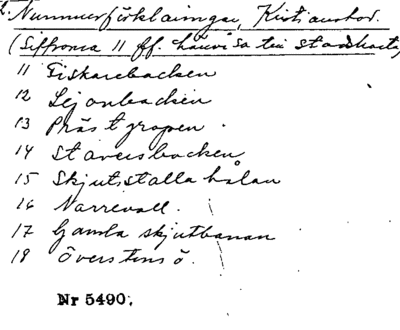 Nummerförklaringar, Kristianstad.
(Siffrorna 11 ff. hänvisa till stadskarta
11 Fiskarebacken
12 Lejonbacken
13 Prästgropen.
14 Staversbacken
15 Skjutställa hålan
16 Narrevall.
17 Gamla skjutbanan
18 Överstens ö.
Nr 5490.